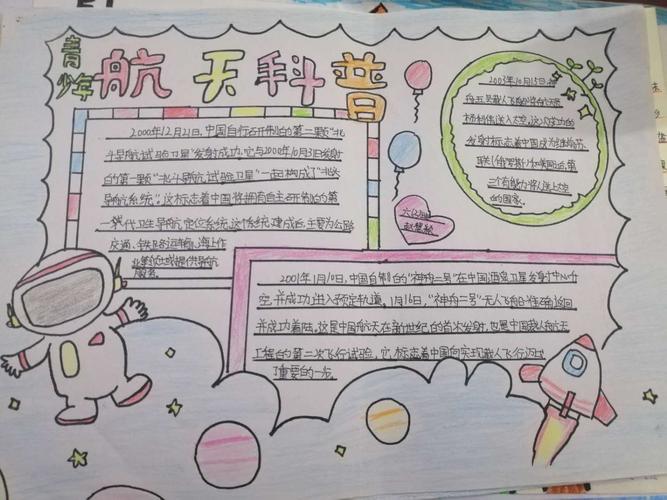 青少年
航天科普
2000年12月21日,中国自行研制的第二颗"北
斗导航试验卫星"发射成功,它与2000年10月31日发射
的第一颗"北斗导航试验卫星"一起构成了"北斗
导航系统"。这标志着中国将拥有自主研制的第
一代卫星导航定位系统,这个系统建成后,主要为公路
交通、铁路运输、海上作
业等领域提供导航
服务。
2003年10月15日,神
舟五号载人飞船将航天员
杨利伟送入太空。这次的成功
发射标志着中国成为继前苏
联(俄罗斯)和美国之后,第
三个有能力将人送上太空
的国家。
2001年1月10日,中国自制的"神舟二号"在中国酒泉卫星发射中心升
空,并成功进入预定轨道。1月16日,"神舟二号"无人飞船准确返回
并成功着陆。这是中国航天在新世纪的首次发射,也是中国载人航天
工程的第二次飞行试验,它标志着中国向实现载人飞行迈出
了重要的一步。